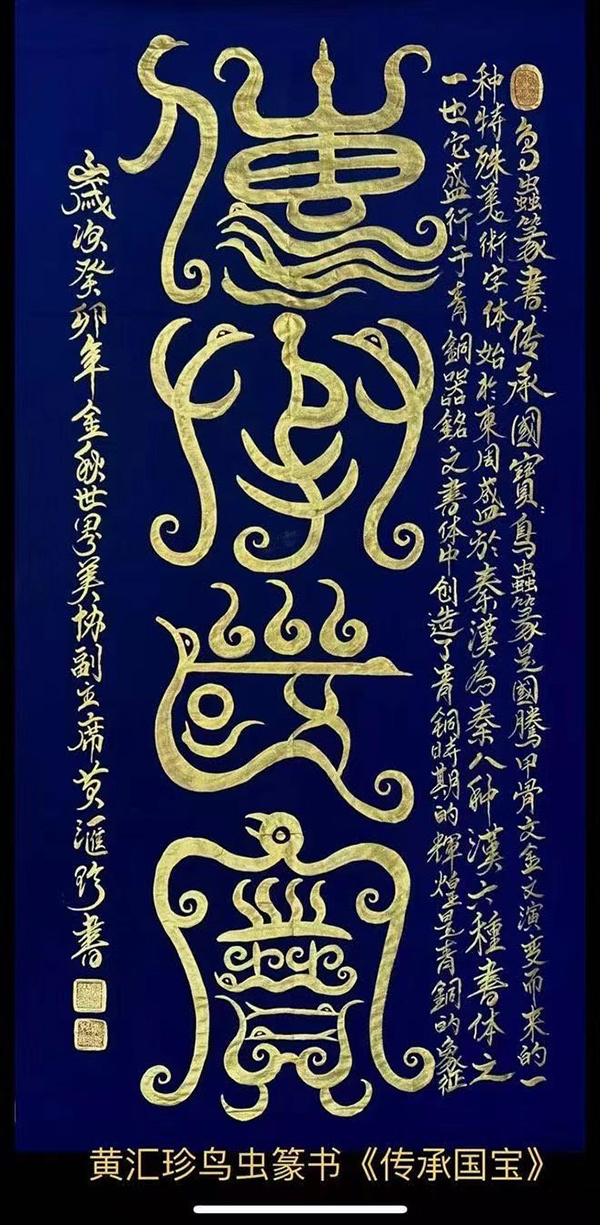 鸟蟲篆書传承國寶鳥蟲篆是國騰甲骨文金文演变而来的一
种特殊美術字体始於東周盛於秦漢為秦八种漢六種書体之
一也它盛行于青銅器銘文書体中创造了青铜時期的輝煌是青銅的象征
傳承國寶
歲次癸卯年金秋世界美协副主席黄滙珍書
黄汇珍鸟虫篆书《传承国宝》